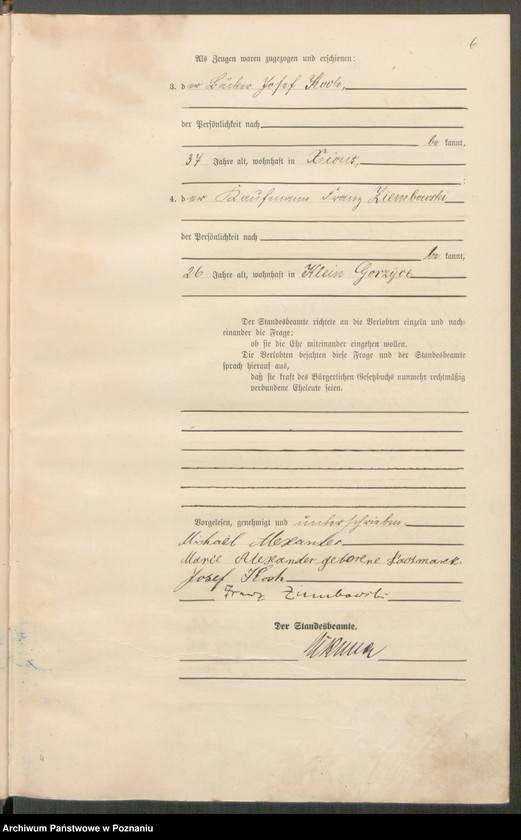 6
Als Zeugen waren zugezogen und erschienen:
3. der Bäcker Josef Koch,
der Persönlichkeit nach
be kannt,
37 Jahre alt, wohnhaft in Xions,
;
4. der Kaufmann Franz Ziembowski
der Persönlichkeit nach
be kannt,
26 Jahre alt, wohnhaft in Klein Gorzyce
Der Standesbeamte richtete an die Verlobten einzeln und nach-
einander die Frage:
ob sie die Ehe miteinander eingehen wollen.
Die Verlobten bejahten diese Frage und der Standesbeamte
sprach hierauf aus,
daß sie kraft des Bürgerlichen Gesetzbuchs nunmehr rechtmäßig
verbundene Eheleute seien.
Vorgelesen, genehmigt und unterschrieben
Michael Alexander
Marie Alexander geborene Kaczmarek
Josef Koch
Franz Ziembowski
Der Standesbeamte.
Archiwum Państwowe w Poznaniu